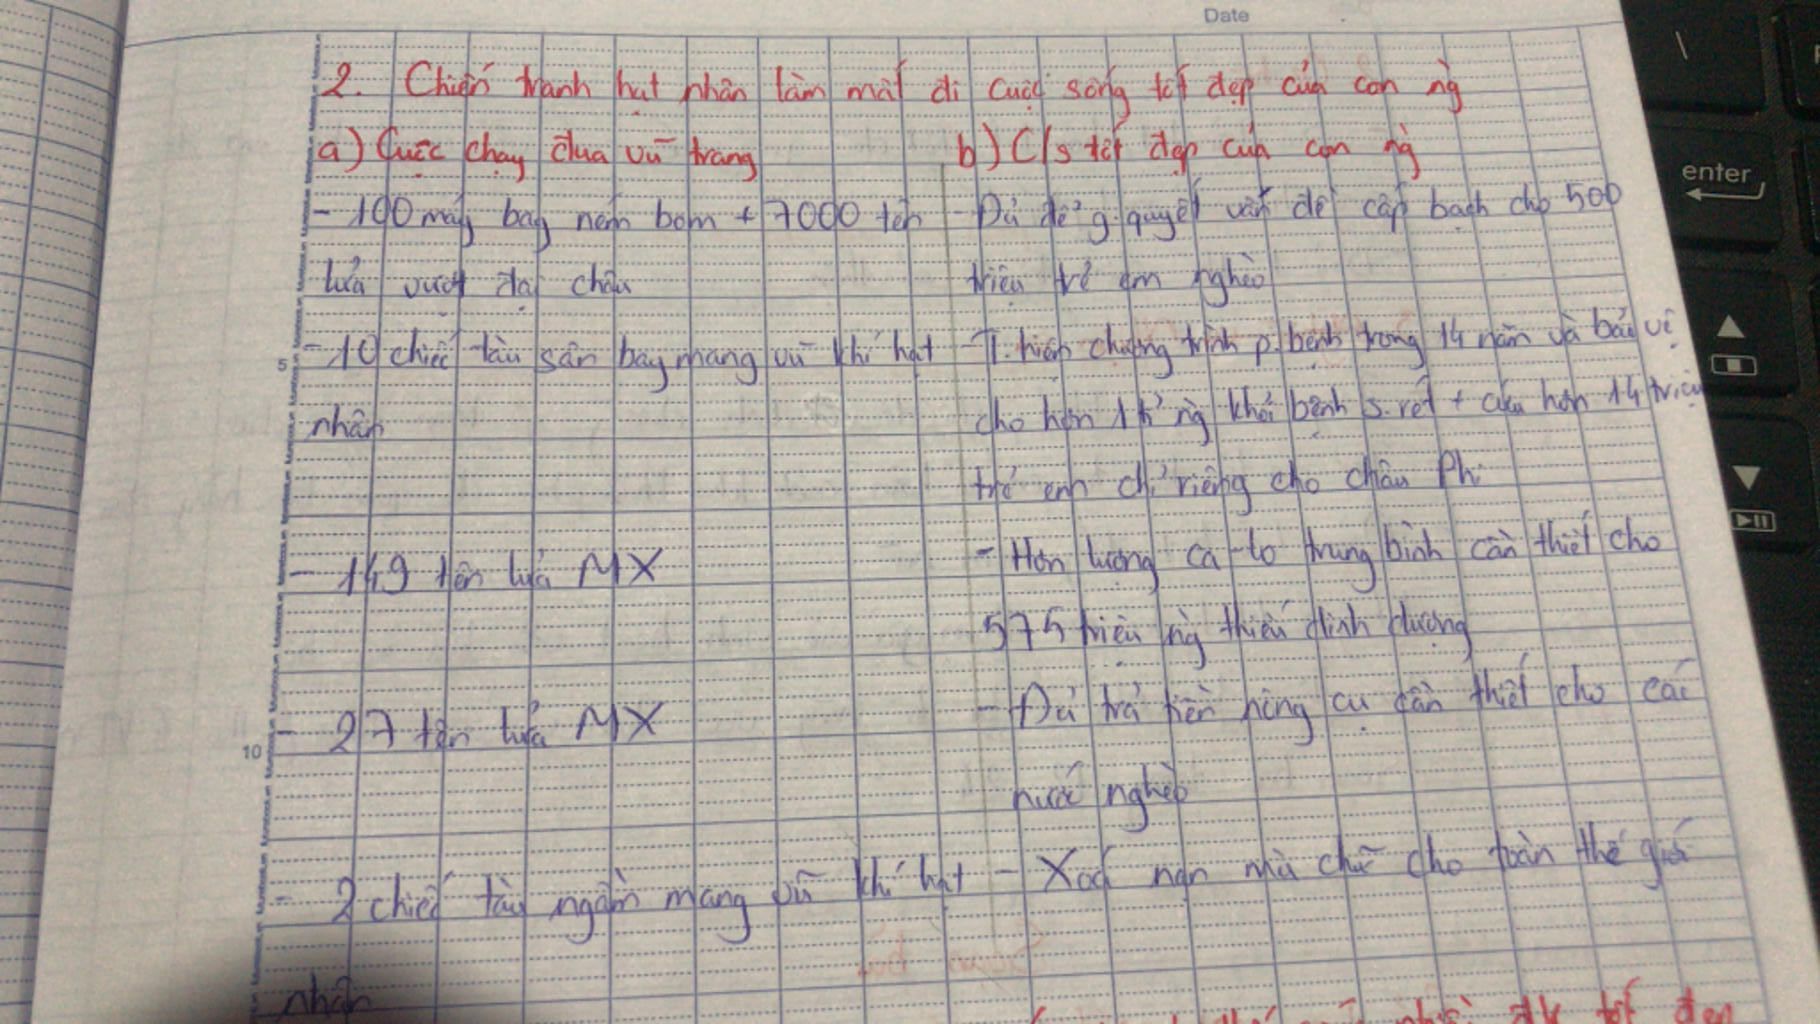 Date
2. Chiến tranh hạt nhân làm mất đi cuộc sống tốt đẹp của con ng
a) Cuộc chạy đua vũ trang
b) C/s tốt đẹp của con ng
- 100 máy bay ném bom + 7000 tên
lửa vượt đại châu
- Đủ để g.quyết vấn đề cấp bách cho 500
triệu trẻ em nghèo
- 10 chiếc tàu sân bay mang vũ khí hạt
nhân
- T.hiện chương trình p.bệnh trong 14 năm và bảo vệ
cho hơn 1 tỉ ng khỏi bệnh s.rét + cứu hơn 14 triệu
trẻ em chỉ riêng cho châu Phi
- 149 tên lửa MX
- Hơn lượng ca-lo trung bình cần thiết cho
575 triệu ng thiếu dinh dưỡng
- 27 tên lửa MX
- Đủ trả tiền nông cụ cần thiết cho các
nước nghèo
- 2 chiếc tàu ngầm mang vũ khí hạt
nhân
- Xoá nạn mù chữ cho toàn thế giới
tốt đẹp
5
10
enter